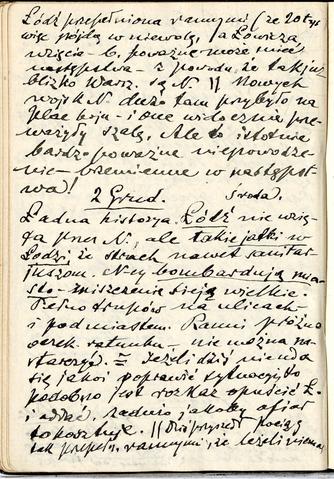 Łódź przepełniona rannymi (że 20 tys
więc pójdą w niewolę, ja Łowicza
wzięcie b. poważne może mieć
następstwa - z powodu, że tak już
blizko Warsz. są N. || Nowych
wojsk N. dużo tam przybyło na
plac boju - i one widocznie prze-
ważyły szalę. Ale to istotnie
bardzo poważne niepowodze-
nie - brzemienne w następst-
wa!
2 Grud. Środa.
Ładna historya. Łódź nie wzię-
ta przez N., ale takie jatki w
Łodzi, że strach nawet sanitar-
juszom. N-cy bombardują mia-
sto - zniszczenia sieją wielkie.
Pełno trupów na ulicach
i pod miastem. Ranni próżno
oczek. ratunku, nie można na-
starczyć. = Jeżeli dziś nie uda
się jakoś poprawić sytuacyi, to
podobno jest rozkaz opuścić Ł.
i oddać, zadużo jakoby ofiar
to kosztuje. || Dziś przyszedł pociąg
tak przepełn. rannymi, że leżeli i siema